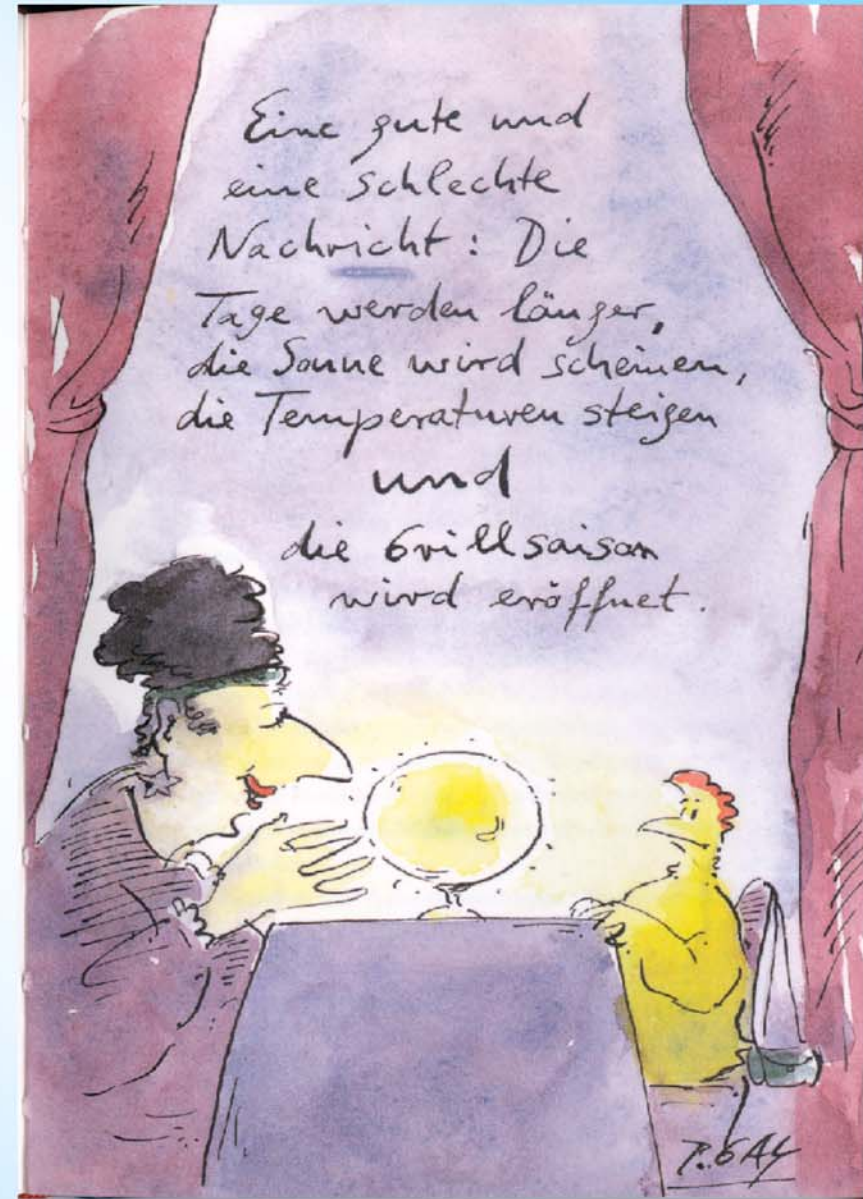 Eine gute und
eine schlechte
Nachricht: Die
Tage werden länger,
die Sonne wird scheinen,
die Temperaturen steigen
und
die Grillsaison
wird eröffnet.
P. GAY